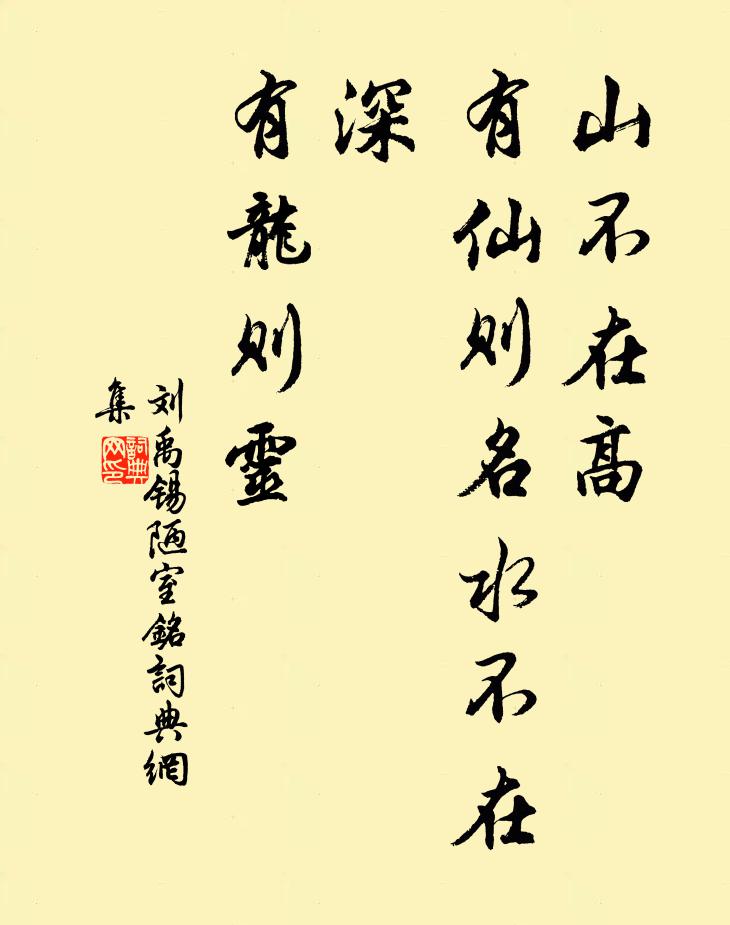 山不在高
有仙则名水不在
深
有龍则靈
刘禹锡陋室銘詞典網
集
詞典
网印